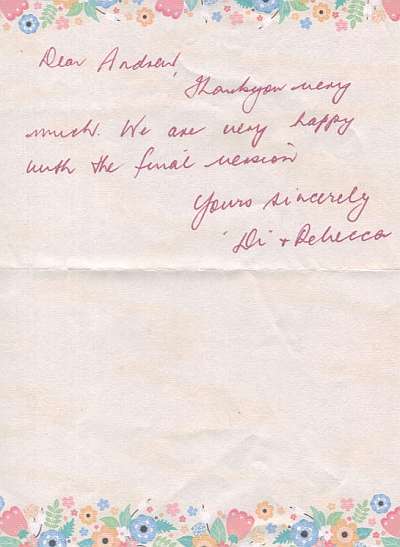 Dear Andrew,
Thankyou very
much. We are very happy
with the final version
Yours sincerely
Di + Rebecca